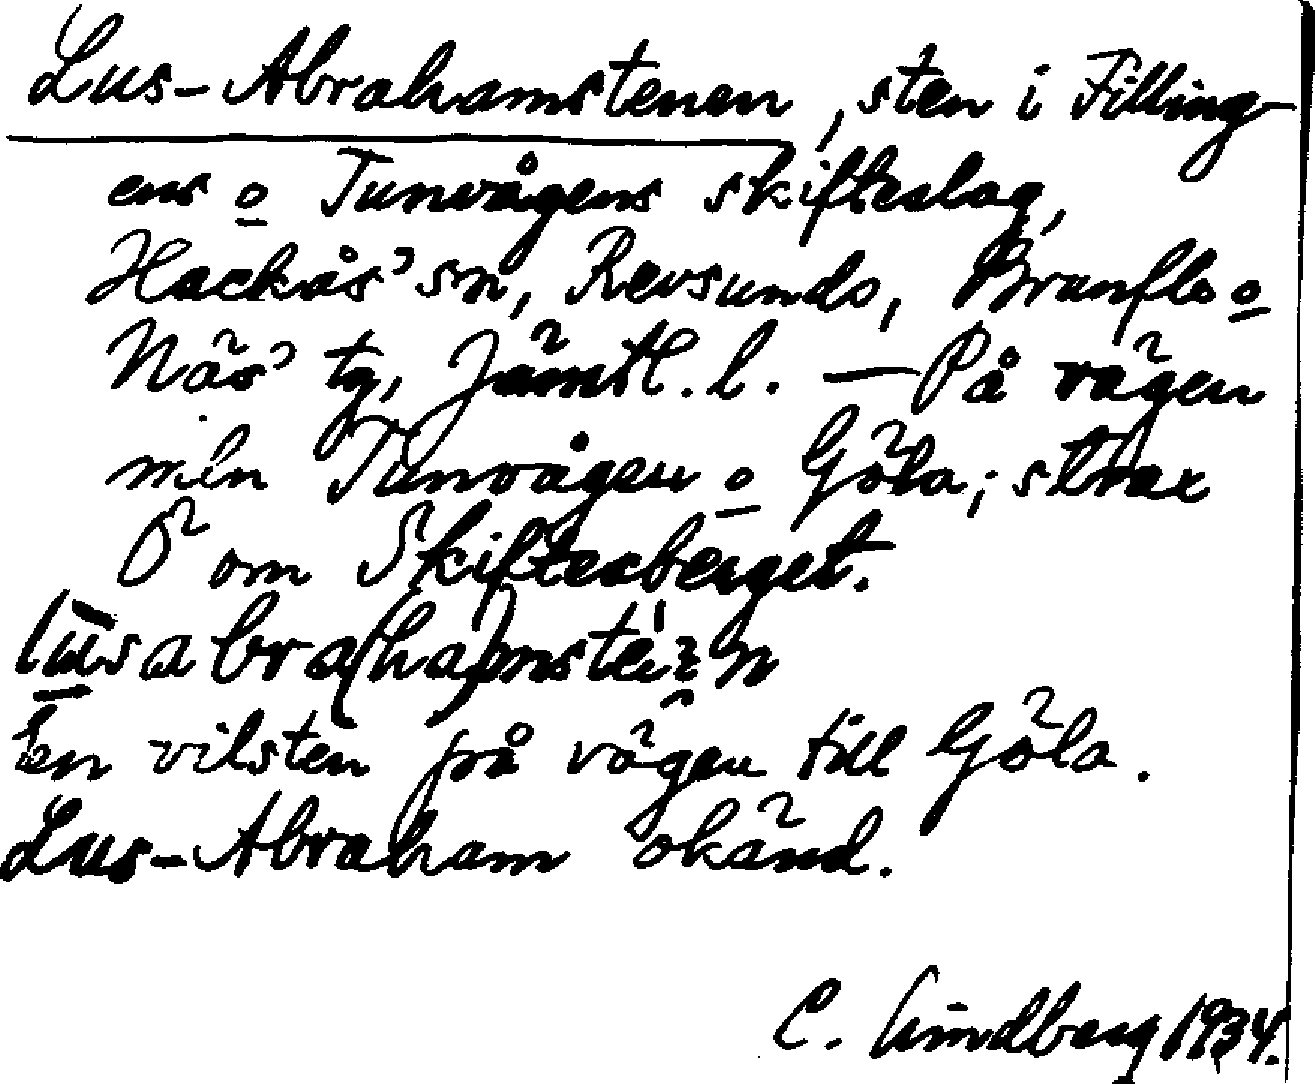 Lus-Abrahamstenen, sten i Filling-
ens o Tunvågens skifteslag,
Hackås' sn, Revsunds, Brunflo o
Näs' tg, Jämtl. l. — På vägen
mln Tunvågen o Göla; strax
Ö om Skiftesberget.
En vilsten på vägen till Göla.
Lus-Abraham okänd.
C. Lindberg 1934.